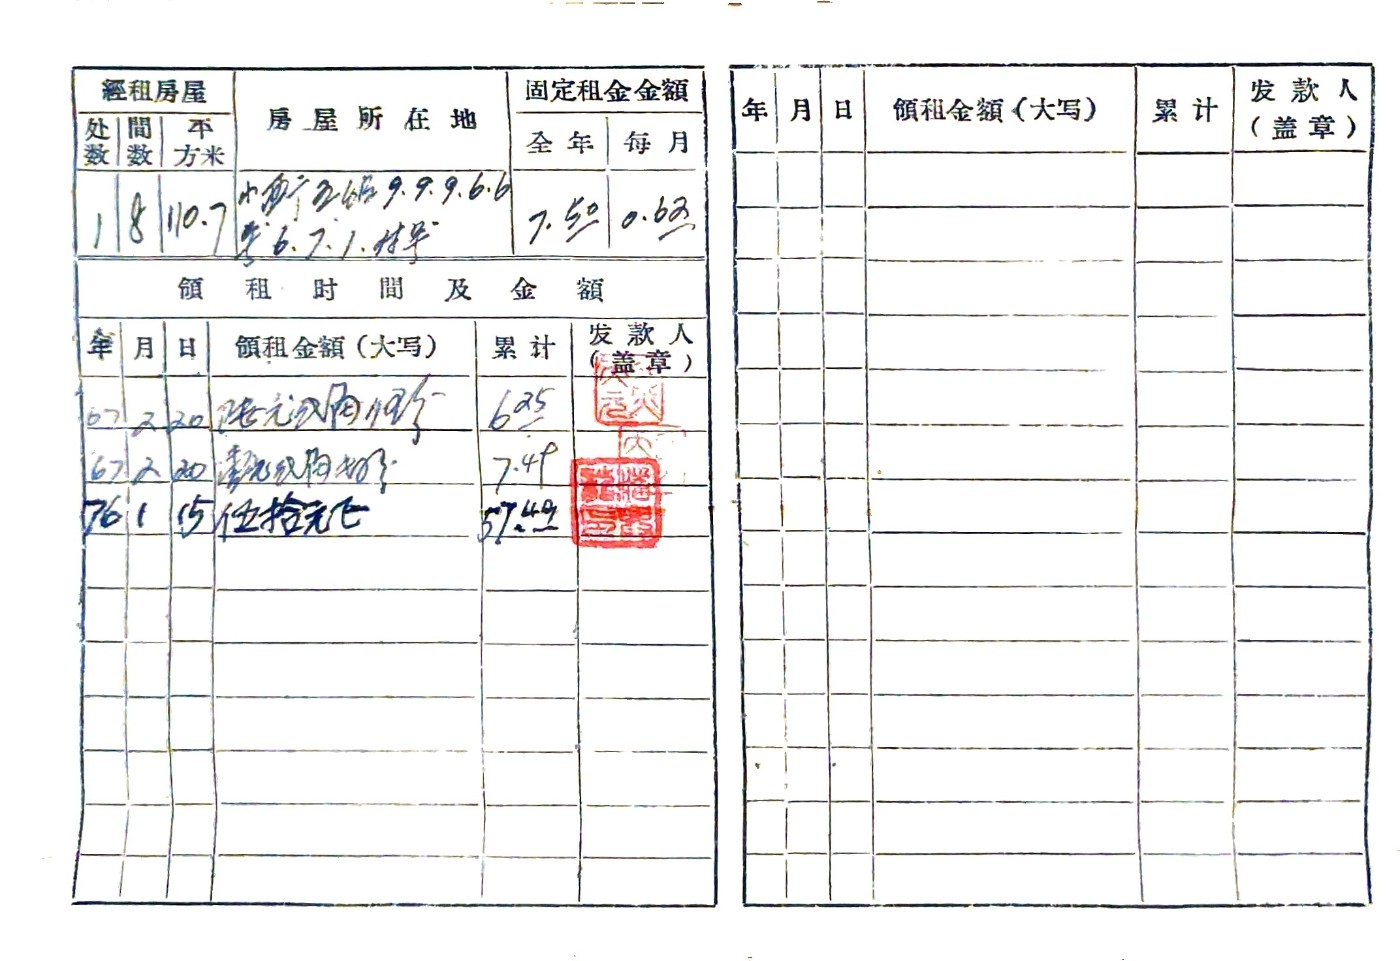 經租房屋 房屋所在地 固定租金金額
处数 間数 平方米 全年 每月
1 8 110.7 9.9.9.6.6 7.50 0.63
6.7.1.
領租时間及金額
年 月 日 領租金額(大写) 累计 发款人(盖章)
67 2 20 陆元弍角伍分 6.25
67 2 20 壹元弍角 分 7.49
76 1 15 伍拾元正 57.49
年 月 日 領租金額(大写) 累计 发款人(盖章)